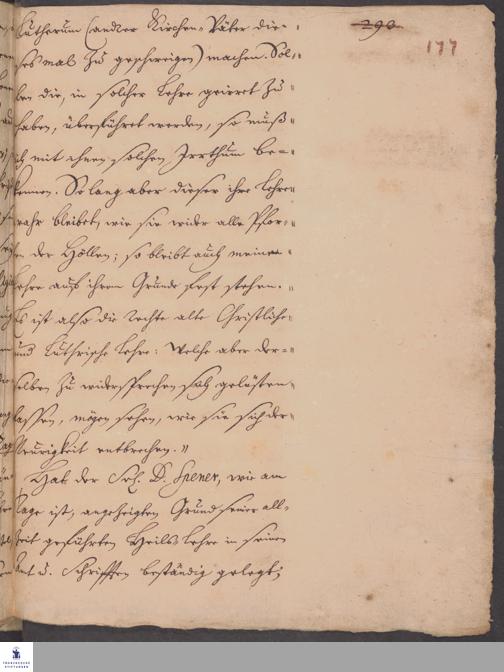 290
177
Lutherum (andler Kirchen-Väter die-
ses mal zu geschweigen) machen. Sol-
len die, in solcher Lehre geirret zu
haben, überführet werden, so muß
ich mit ihnen solchen Irrthum be-
kennen. So lang aber dieser ihre Lehre
wahr bleibet, wie sie wider alle Pfor-
ten der Höllen; so bleibt auch meine
Lehre auf ihrem Grunde fest stehen.
Es ist also die rechte alte Christliche
und Luthrische Lehre: Welche aber der-
selben zu widersprechen sich gelüsten
lassen, mögen sehen, wie sie sich der
Neurigkeit entbrechen."
Hat der Sel. D. Spener, wie am
Tage ist, angezeigten Grund seiner all-
zeit geführten Heils-Lehre in seinen
Amt u. Schrifften beständig gelegt;
FRANCKESCHE
STIFTUNGEN